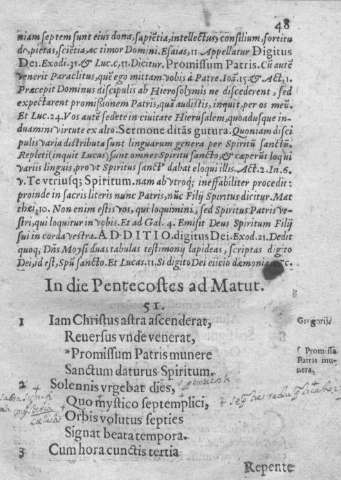 48
niam septem sunt eius dona, sapiẽtia, intellectus, consilium, fortitu
do, pietas, sciẽtia, ac timor Domini. Esaias, 11 Appellatur Digitus
Dei. Exodi. 31. & Luc. 11. Dicitur. Promissum Patris. Cũ autẽ
venerit Paraclitus, quẽ ego mittam vobis à Patre. Ioã. 15. & Act, 1.
Præcepit Dominus discipulis ab Hierosolymis ne discederent, sed
expectarent promissionem Patris, quã audistis, inquit, per os meũ.
Et Luc. 24. Vos autẽ sedete in ciuitate Hierusalem, quoadusque in-
duamini virtute ex alto. Sermone ditãs gutura. Quoniam disci
pulis varia distributa sunt linguarum genera per Spiritũ sanctũ.
Repleti (inquit Lucas) sunt omnes Spiritu sancto, & cœperũt loqui
variis linguis, pro vt Spiritus sanct⁹ dabat eloqui illis. Act. 2. In. 6.
v. Te vtriusq; Spiritum. nam ab vtroq; ineffabiliter procedit:
proinde in sacris literis nunc Patris, nũc Filij Spiritus dicitur. Mat
thei, 10. Non enim estis vos, qui loquimini, sed Spiritus Patris ve-
stri, qui loquitur in vobis. Et ad Gal. 4. Emisit Deus Spiritum Filij
sui in corda vestra. ADDITIO. digitus Dei. Exod. 31. Dedit
quoq; Dñs Moysi duas tabulas testimonij lapideas, scriptas digito
Dei, id est, Spũ sancto. Et Lucas. 11. Si digito Dei eiicio dæmonia &c.
In die Pentecostes ad Matut.
51.
1 Iam Christus astra ascenderat,
Reuersus vnde venerat,
Gregorij.
*Promissum Patris munere
f Promissa
Patris mu-
nera,
Sanctum daturus Spiritum.
2 Solennis vrgebat dies,
Quo mystico septemplici,
Orbis volutus septies
Signat beata tempora.
3 Cum hora cunctis tertia
Repente